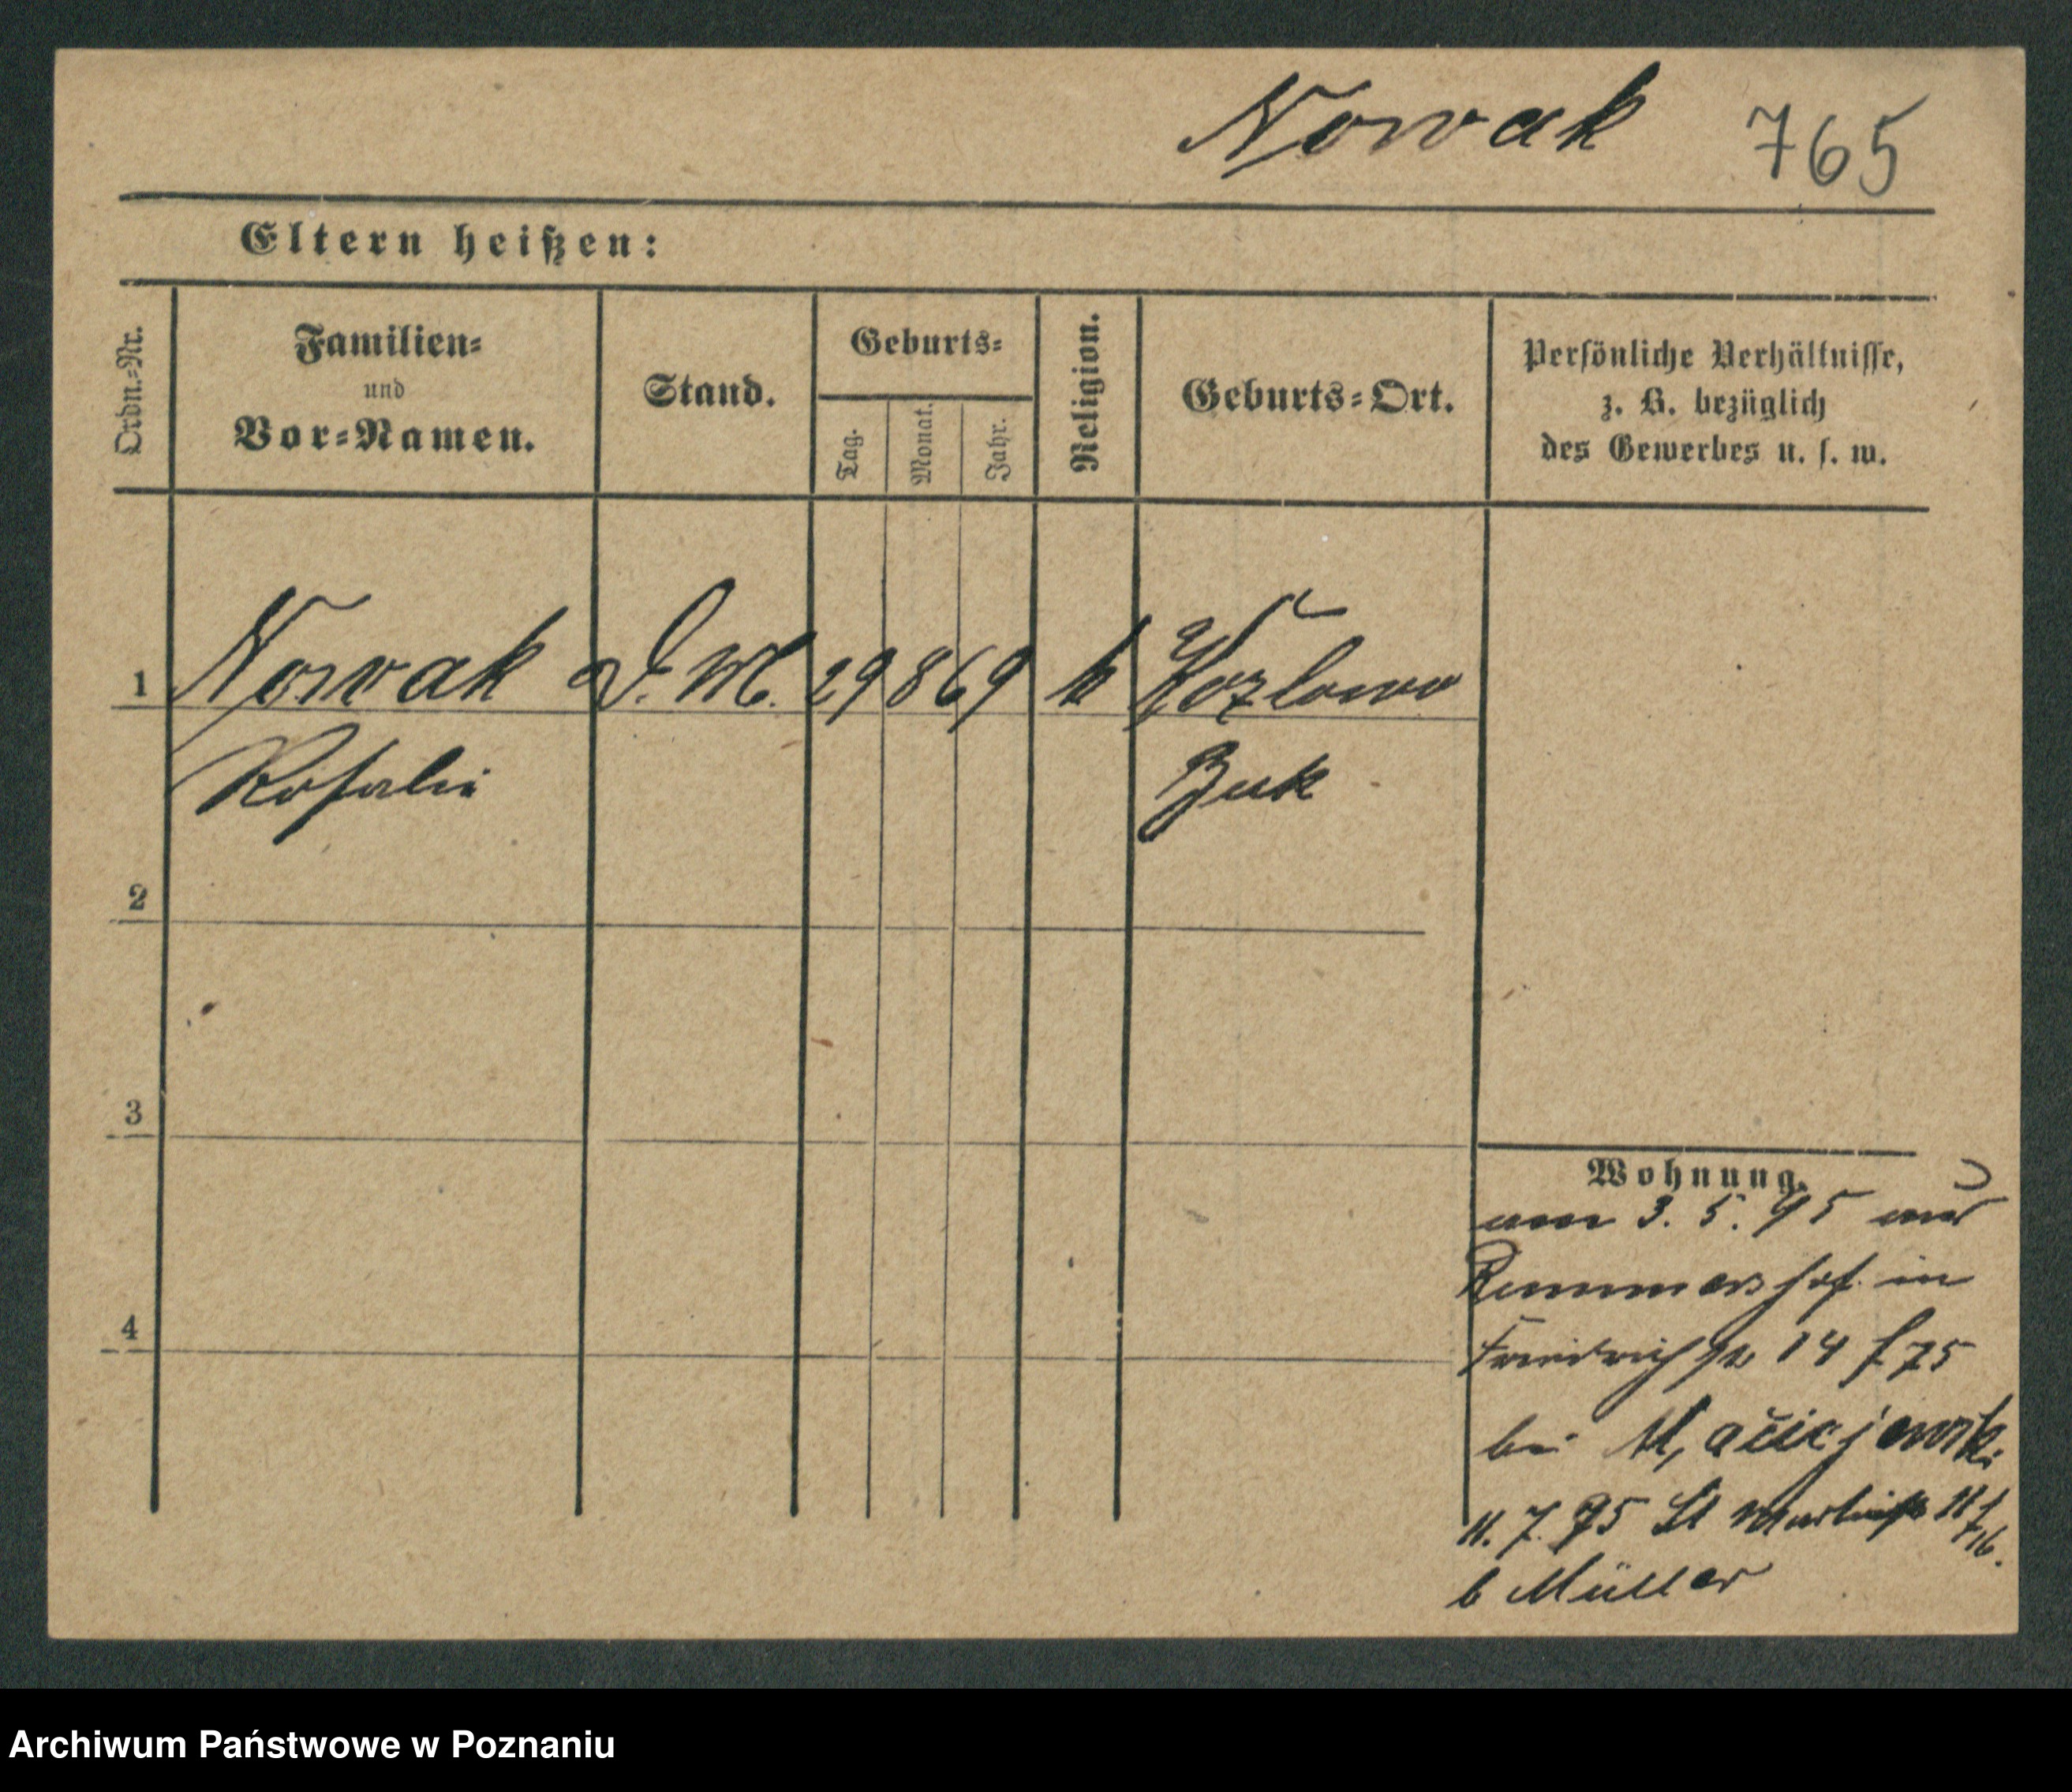 Nowak 765
Eltern heißen:
Ordn.-Nr.
Familien-
und
Vor-Namen.
Stand.
Geburts-
Tag.
Monat.
Jahr.
Religion.
Geburts-Ort.
Persönliche Verhältnisse,
z. B. bezüglich
des Gewerbes u. s. w.
1 Nowak D. M. 29 8 69 k Kozlowo
Rosalie Buk
2
3
4
Wohnung.
am 3. 5. 95 aus
in
Friedrichstr 14
bei Maciejewski
11. 7. 95 St Martinstr
b Müller
Archiwum Państwowe w Poznaniu